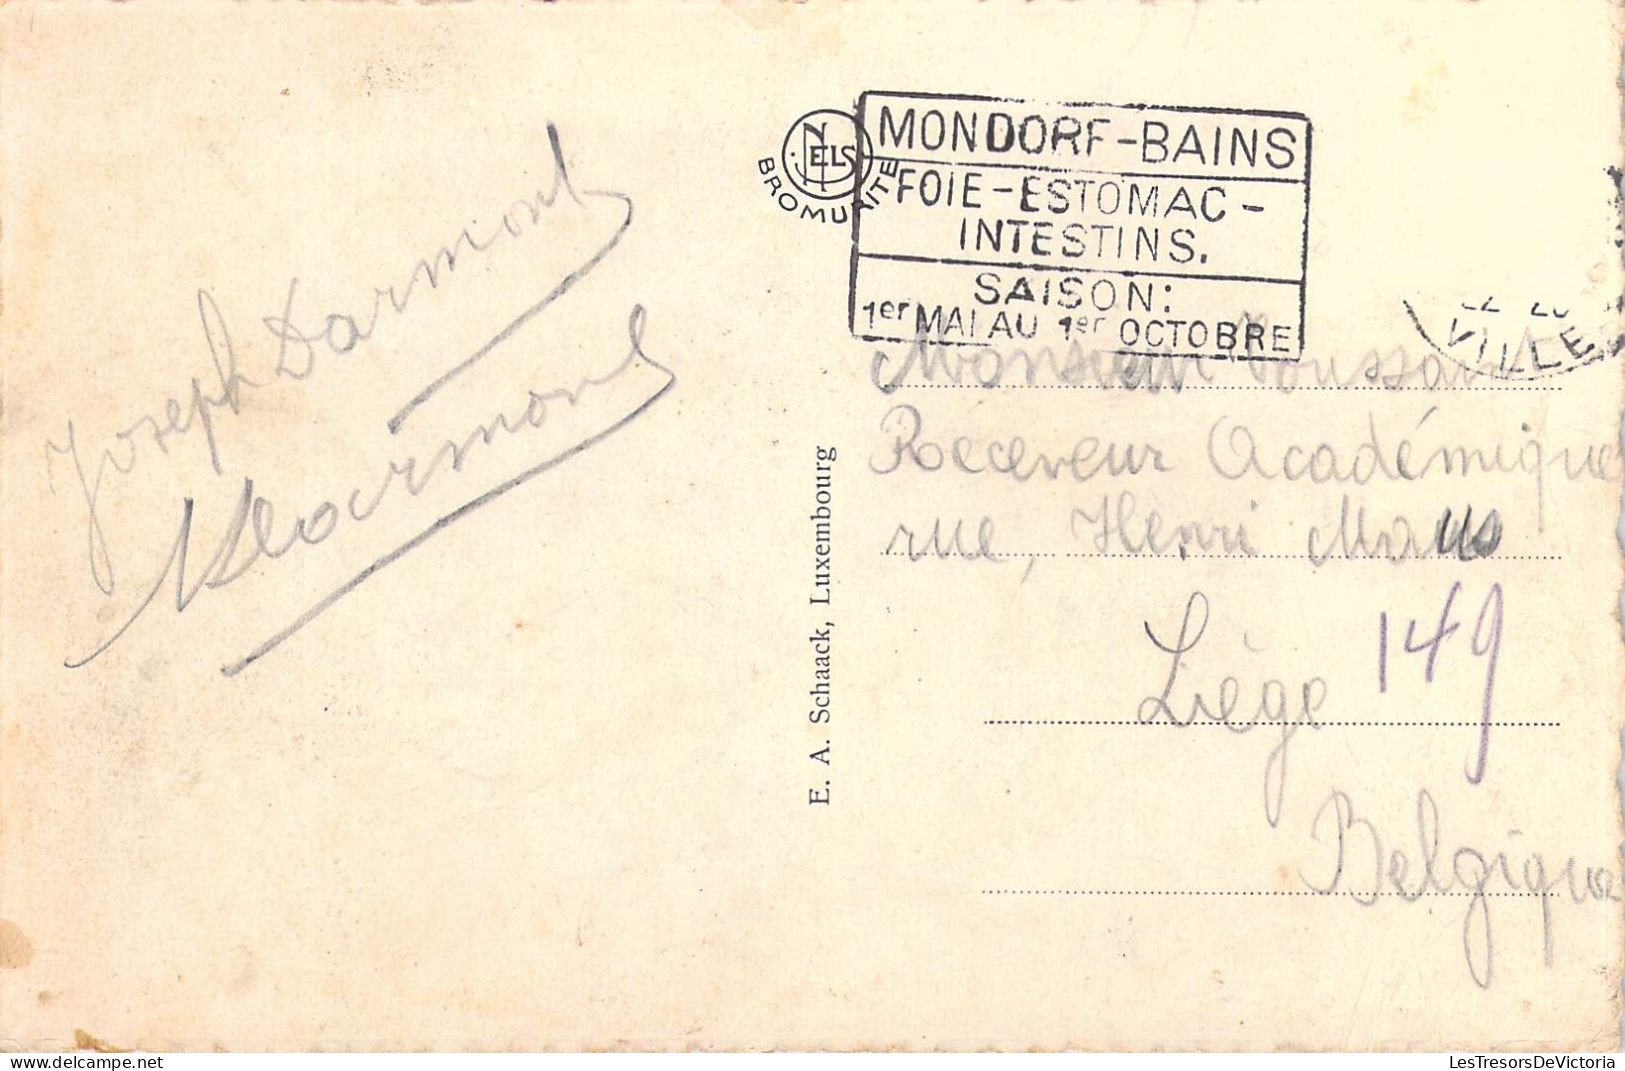 Joseph Darmont
NELS
BROMURITE
MONDORF-BAINS
FOIE - ESTOMAC -
INTESTINS.
SAISON:
1er MAI AU 1er OCTOBRE
VILLE
E. A. Schaack, Luxembourg
Monsieur Toussaint
Receveur Académique
rue, Henri Maus
149
Liége
Belgique
LesTresorsDeVictoria